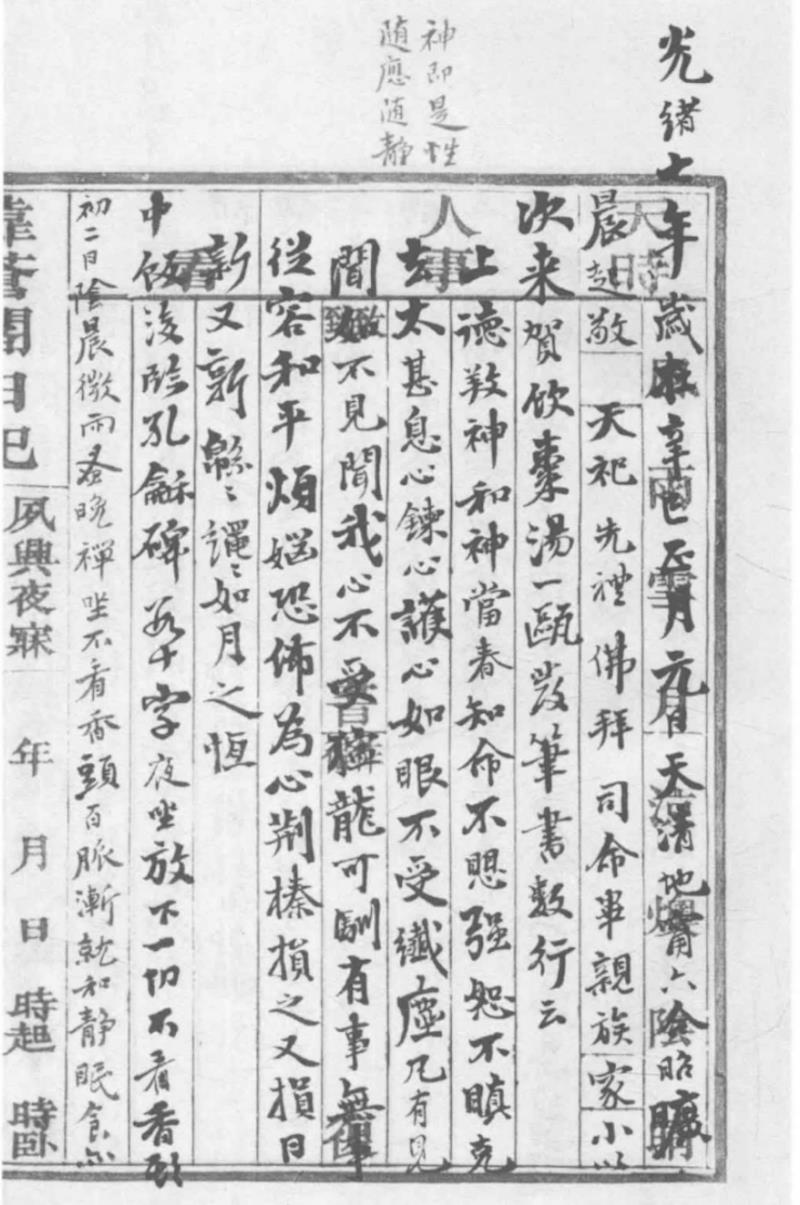 光緒七年歲在辛巳正月元日天清地甯六陰昭曠
晨起敬天祀先禮佛拜司命畢親族家小以
次来賀飲棗湯一甌發筆書數行云
上德教神和神當春知命不愳強恕不瞋克
去太甚息心鍊心護心如眼不受纖塵凡有見
聞如不見聞我心不受獰龍可馴有事無事
從容和平煩惱恐怖為心荊榛損之又損日
新又新緜〻繩〻如月之恆
中飯後臨孔龢碑若干字夜坐放下一切不看香頭
初二日陰晨微雨蚤晚禪坐不看香頭百脈漸就和静眠食亦
神即是性
随應随静
天時
人事
日記
夙興夜寐 年 月 日 時起 時卧